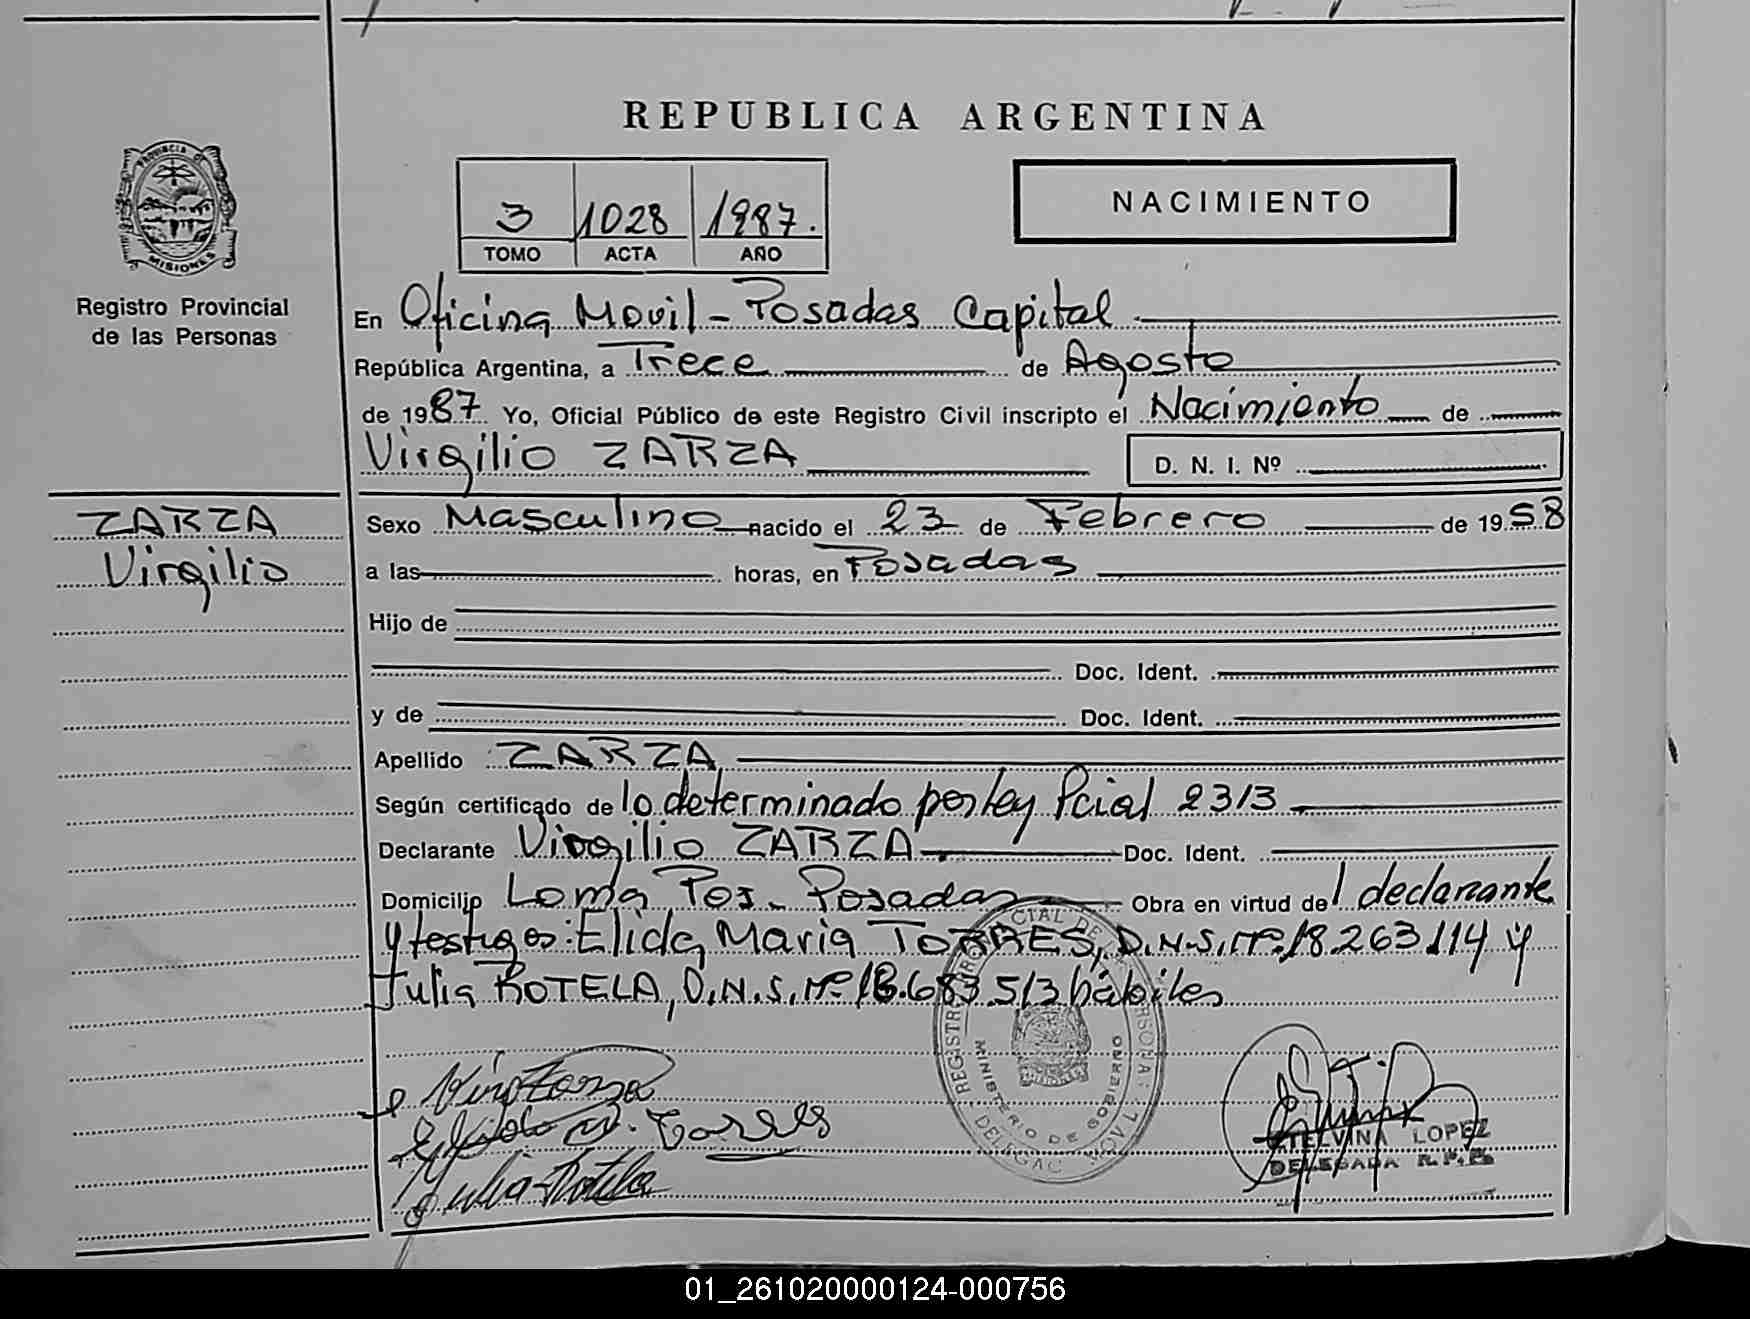 REPUBLICA ARGENTINA
PROVINCIA DE
MISIONES
Registro Provincial
de las Personas
3 1028 1987.
TOMO ACTA AÑO
NACIMIENTO
En Oficina Movil - Posadas Capital
República Argentina, a Trece de Agosto
de 1987 Yo, Oficial Público de este Registro Civil inscripto el Nacimiento de
Virgilio ZARZA D. N. I. Nº
ZARZA
Virgilio
Sexo Masculino nacido el 23 de Febrero de 1958
a las horas, en Posadas
Hijo de
Doc. Ident.
y de Doc. Ident.
Apellido ZARZA
Según certificado de lo determinado por ley Pcial 2313
Declarante Virgilio ZARZA Doc. Ident.
Domicilio Loma Pos. Posadas Obra en virtud del declarante
y testigos: Elida Maria TORRES, D.N.S. Nº 18.263.114 y
Julia ROTELA, D.N.S. Nº 18.683.513 hábiles
MINISTERIO DE GOBIERNO
Julia Rotela
ETELVINA LOPEZ
DELEGADA R.P.P.
01_261020000124-000756